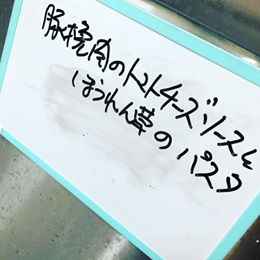 豚挽肉のトマトチーズソースと
ほうれん草の パスタ